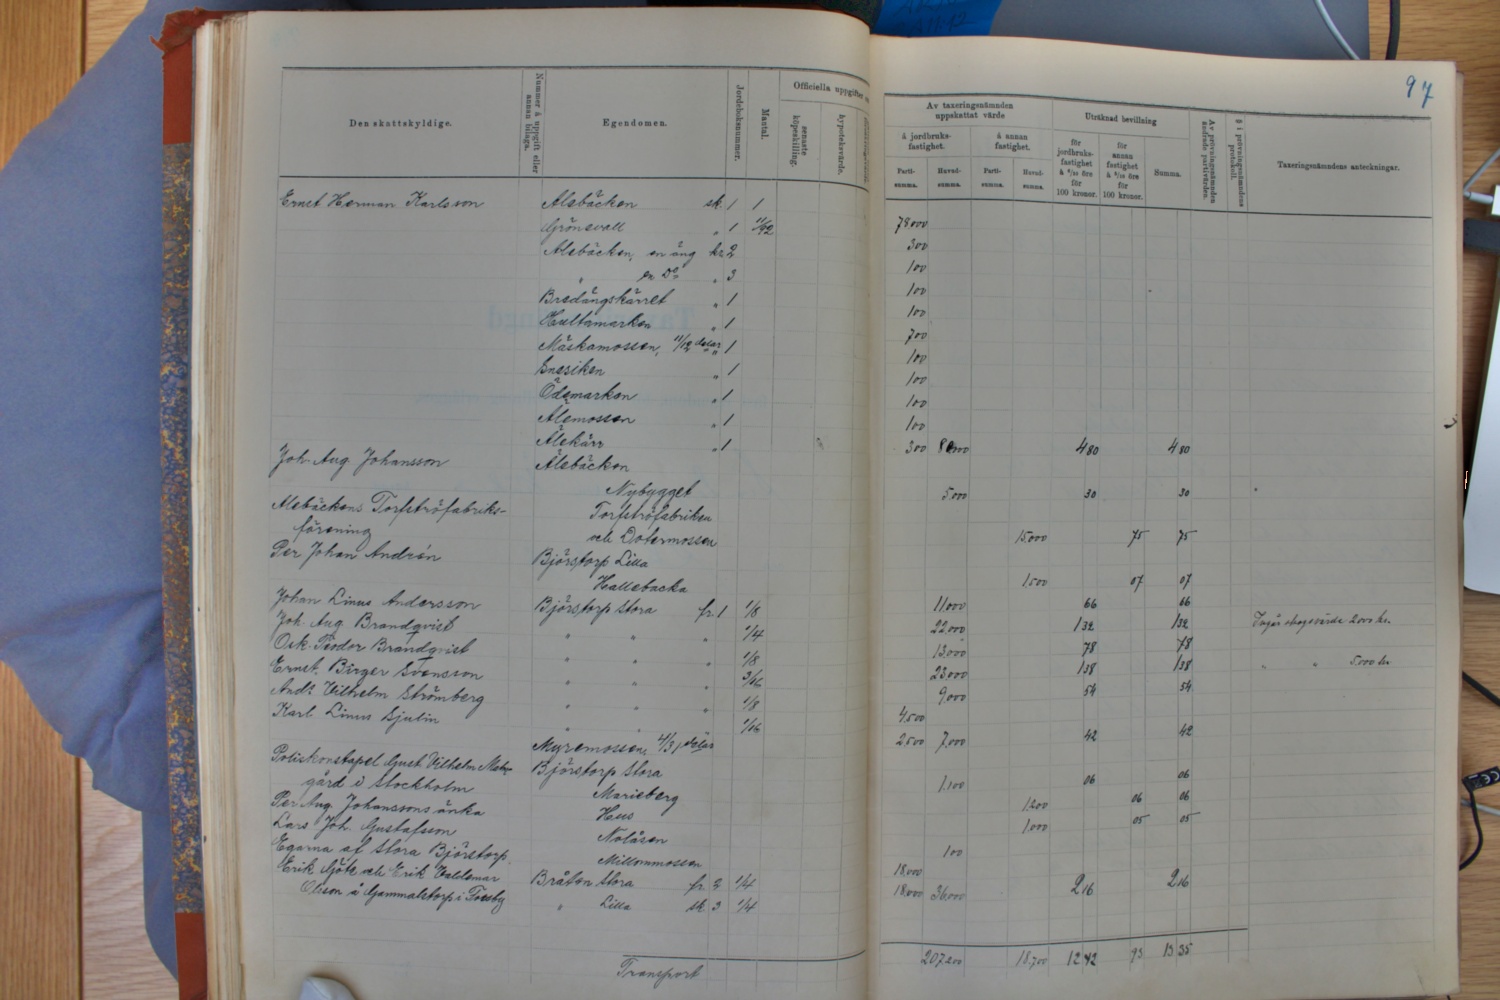 97
Den skattskyldige.
Nummer å uppgift eller annan bilaga.
Egendomen.
Jordeboksnummer.
Mantal.
Officiella uppgifter
senaste köpeskilling.
hypoteksvärde.
Av taxeringsnämnden uppskattat värde
å jordbruksfastighet.
å annan fastighet.
Partisumma.
Huvudsumma.
Partisumma.
Huvudsumma.
Uträknad bevillning
för jordbruksfastighet å 6/10 öre för 100 kronor.
för annan fastighet å 5/10 öre för 100 kronor.
Summa.
Av prövningsnämnden ändrade partivärden.
§ i prövningsnämndens protokoll.
Taxeringsnämndens anteckningar.
Ernst Herman Karlsson Alsbäcken sk. 1 1
78000
Grönsvall " 1 11/12
300
Alsbäcken, en äng kr. 2
100
" en Do " 3
100
Bredängskärret " 1
100
Hultamarken " 1
700
Mäskamossen, 11/12 delar " 1
100
Snesiken " 1
100
Ödemarken " 1
100
Alemossen " 1
100
Älekärr " 1
300 80000 480 480
Joh. Aug. Johansson Älsbäcken
Nybygget
5000 30 30
Alsbäckens Torfströfabriks-
förening
Torfströfabriken
och Dotermossen
15000 75 75
Per Johan Andrén Björstorp Lilla
Hallebacka
1500 07 07
Johan Linus Andersson Björstorp Stora fr. 1 1/8
11000 66 66
Joh. Aug. Brandqvist " " " 1/4
22000 132 132 Ingår skogsvärde 2000 kr.
Osk. Teodor Brandqvist " " " 1/8
13000 78 78
Ernst Birger Svensson " " " 3/16
23000 138 138 " " 5000 kr
Andr. Vilhelm Strömberg " " " 1/8
9000 54 54
Karl Linus Sjulin " " " 1/16
4500
Myremossen, 4/31 delar
2500 7000 42 42
Poliskonstapel Gust. Vilhelm
gård i Stockholm
Björstorp Stora
Marieberg
1100 06 06
Per Aug. Johanssons änka Hus
1200 06 06
Lars Joh. Gustafsson Nolåsen
1000 05 05
Egarna af Stora Björstorp.
Millommossen
100
Erik Göte och Erik Valdemar
Olsson å Gammalstorp i Tösby
Bråten Stora fr. 2 1/4
18000
" Lilla sk. 3 1/4
18000 36000 216 216
Transport
207200 18700 1242 93 1335